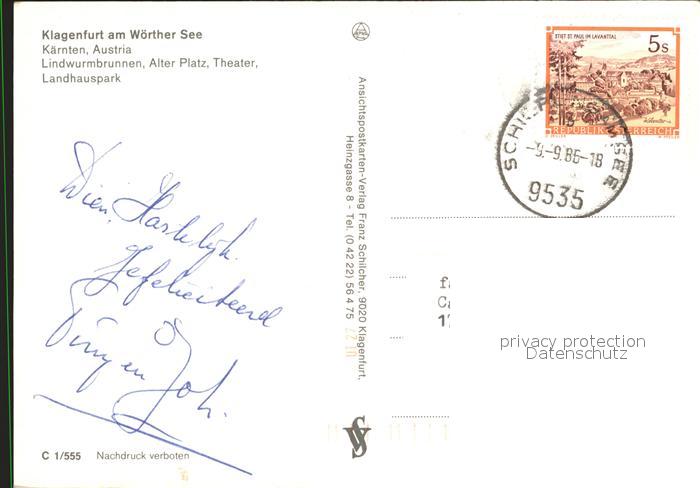 Klagenfurt am Wörther See
Kärnten, Austria
Lindwurmbrunnen, Alter Platz, Theater,
Landhauspark
Ansichtspostkarten-Verlag Franz Schilcher, 9020 Klagenfurt,
Heinzgasse 8 - Tel. (0 42 22) 56 4 75
STIFT ST. PAUL IM LAVANTTAL
5s
REPUBLIK ÖSTERREICH
-9.-9.86-18
9535
Wien, Hartelijk
gefeliciteerd
Joh.
privacy protection
Datenschutz
C 1/555 Nachdruck verboten